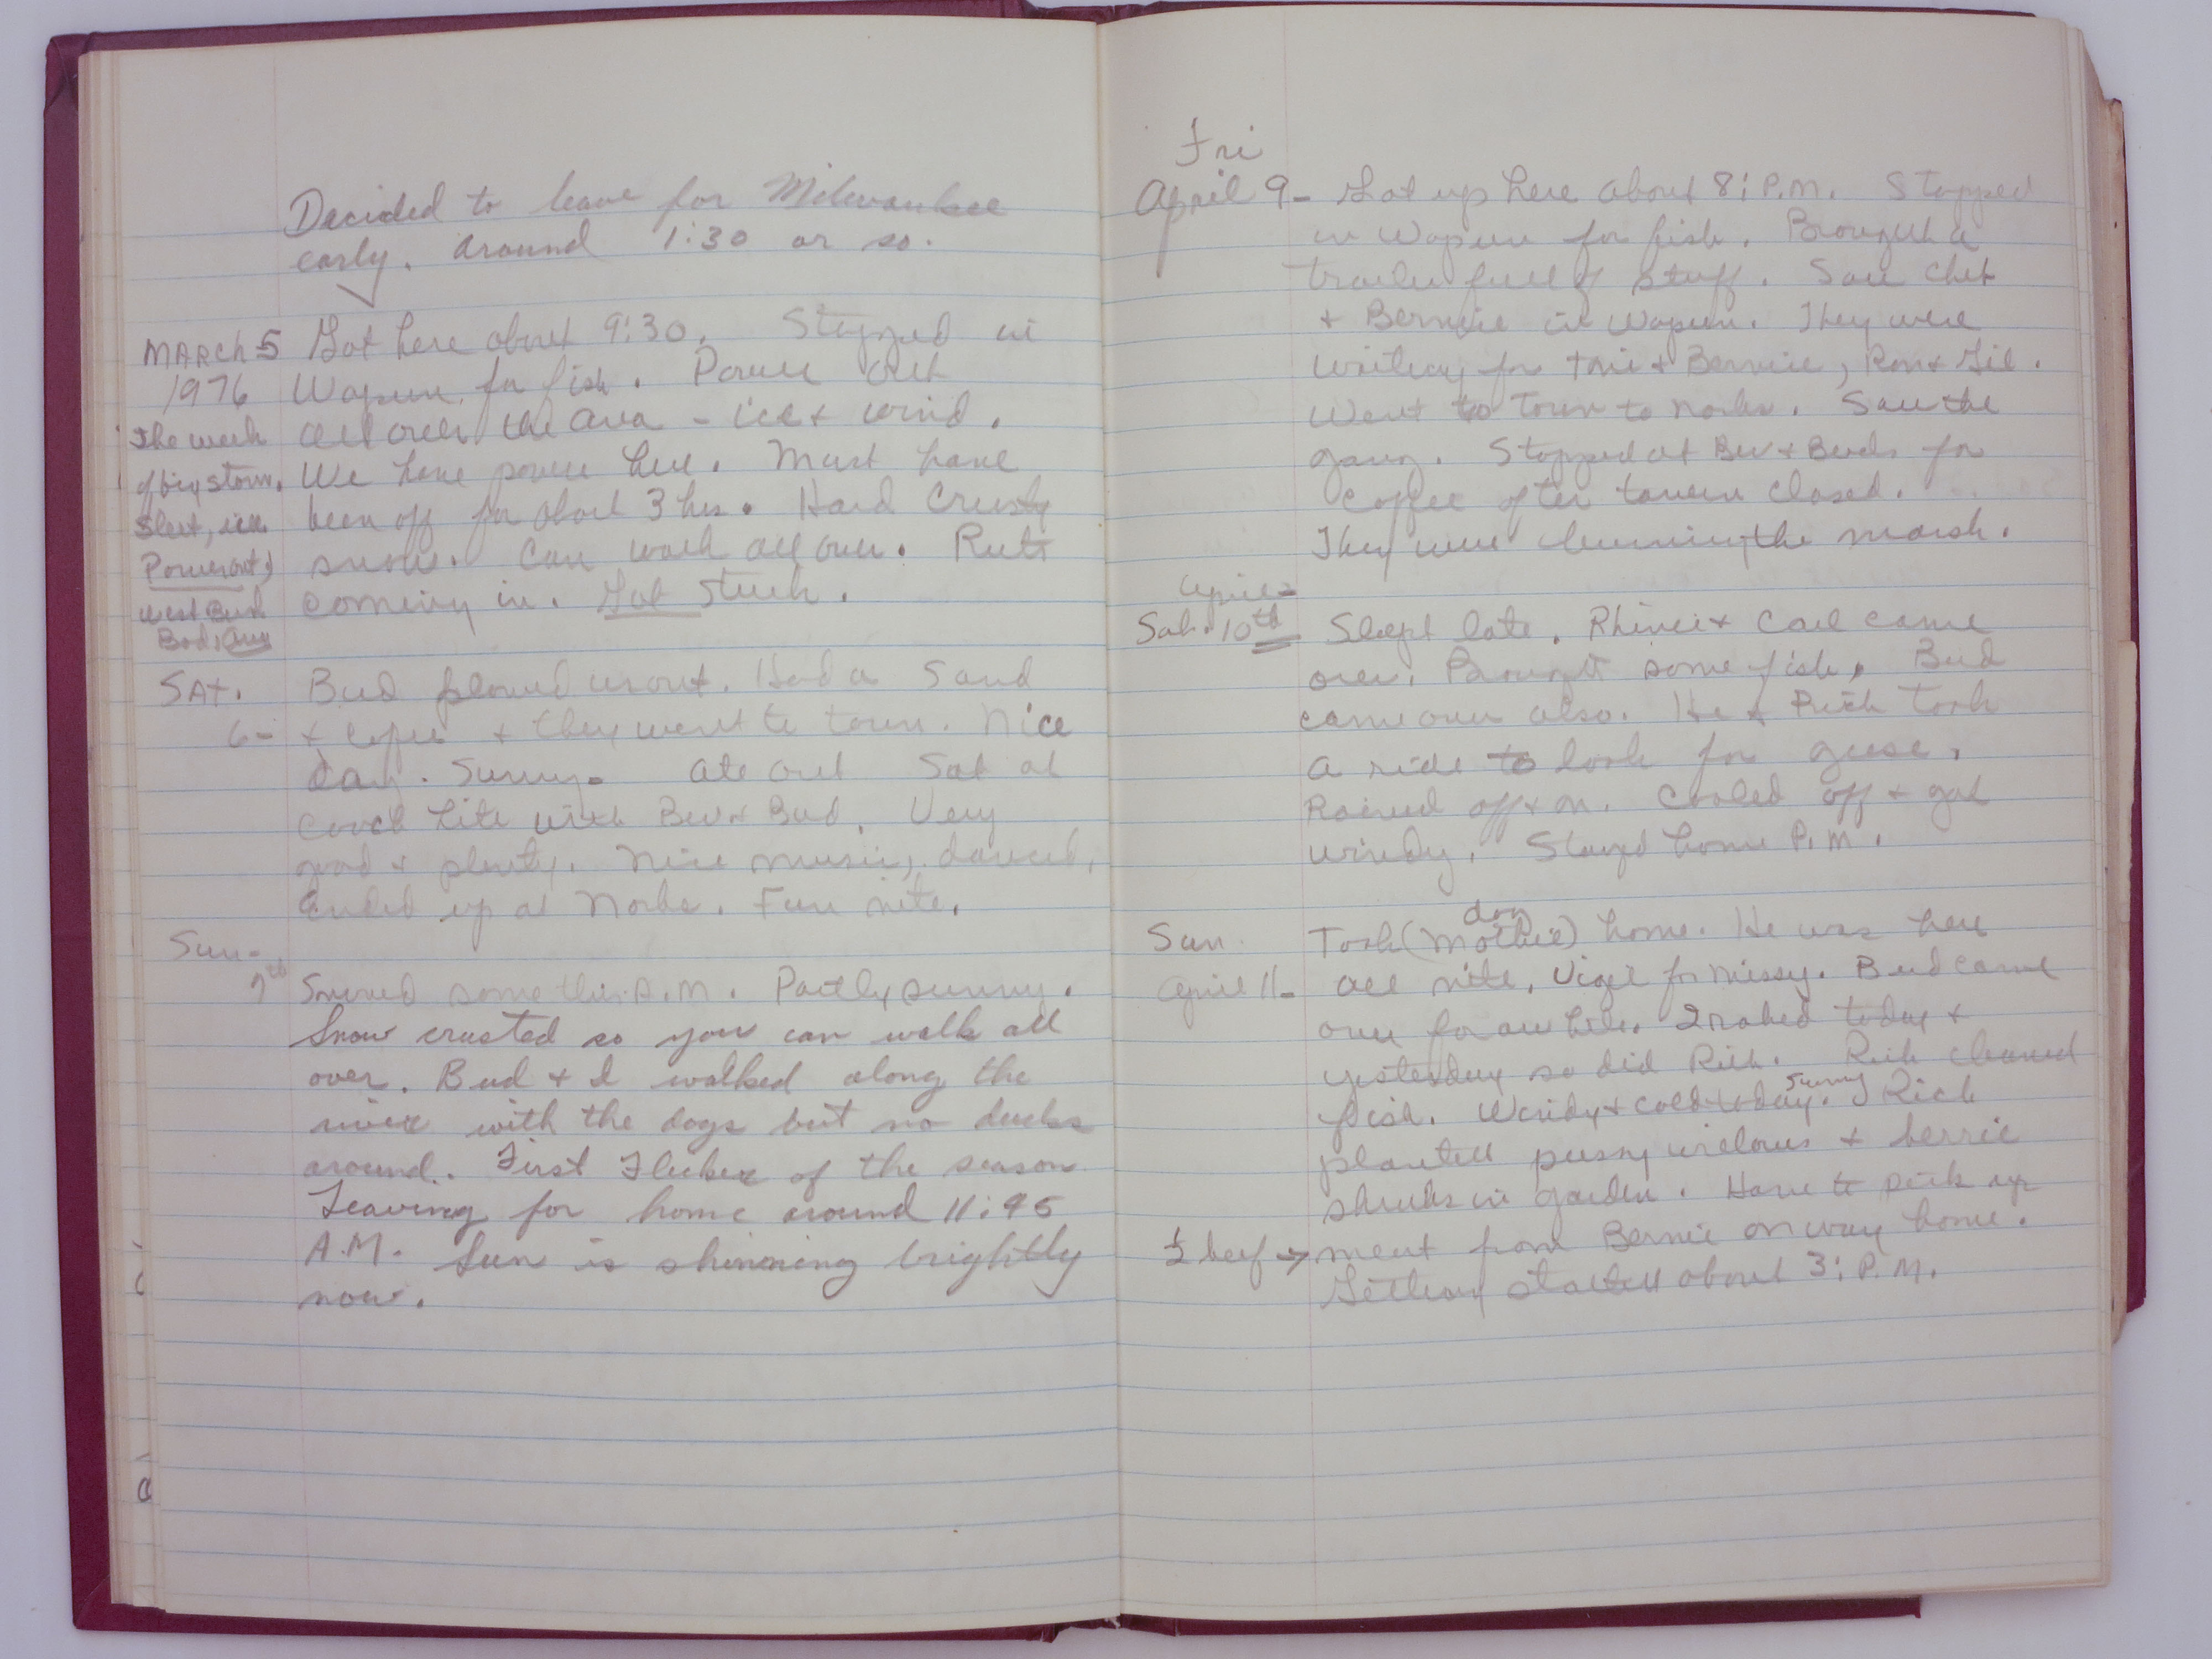 Decided to leave for Milwaukee
early. around 1:30 or so.
MARCH 5 Got here about 9:30. Stopped in
1976 Wapun for fish. Power out
The week all over the area - ice + wind.
of big storm. We have power here. Must have
Sleet, ice been off for about 3 hrs. Hard Crusty
Power out, snow. Can walk all over. Ruts
West Bend coming in. Got Stuck.
Bad, Any
SAT. Bud plowed us out. Had a Sand
6- + coffee + they went to town. Nice
day. Sunny. Ate out Sat at
Coach Lite with Bev + Bud. Very
good + plenty. Nice music, danced,
Ended up at Norbs. Fun nite.
Sun-
7th Snowed some this A.M. Partly sunny.
Snow crusted so you can walk all
over. Bud + I walked along the
river with the dogs but no ducks
around. First Flicker of the season
Leaving for home around 11:45
A.M. Sun is shinning brightly
now.
Fri
April 9- Got up here about 8: P.M. Stopped
in Wapun for fish. Brought a
trailer full of stuff. Saw Chet
+ Bernice in Wapun. They were
waiting for + Bernie, Ron + Gil.
Went to Town to Norbs. Saw the
gang. Stopped at Bev + Buds for
Coffee after tavern closed.
They were burning the marsh.
April-
Sat. 10th Slept late. + Carl came
over. Brought some fish. Bud
came over also. He + Rich Took
a ride to look for geese.
Rained off + on. Cooled off + got
windy. Stayed home P.M.
dog
Sun. Took (Mollie) home. He was here
April 11- all nite. Vigil for Missy. Bud came
over for awhile. I raked today +
yesterday so did Rich. Rich cleaned
sunny
fish. Windy + cold today. Rich
planted pussy willows + berrie
shrubs in garden. Have to pick up
½ beef → meat from Bernie on way home.
Getting started about 3: P.M.